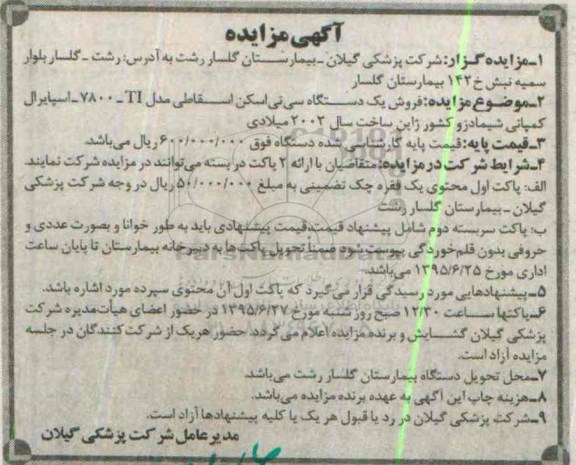 آگهی مزایده
۱ـ مزایده گزار: شرکت پزشکی گیلان ـ بیمارستان گلسار رشت به آدرس: رشت ـ گلسار بلوار
سمیه نبش خ ۱۴۲ بیمارستان گلسار
۲ـ موضوع مزایده: فروش یک دستگاه سی تی اسکن اسقاطی مدل TI ـ ۷۸۰۰ ـ اسپایرال
کمپانی شیمادزو کشور ژاپن ساخت سال ۲۰۰۲ میلادی
۳ـ قیمت پایه: قیمت پایه کارشناسی شده دستگاه فوق ۶۰۰/۰۰۰/۰۰۰ ریال می‌باشد.
۴ـ شرایط شرکت در مزایده: متقاضیان با ارائه ۲ پاکت در بسته می‌توانند در مزایده شرکت نمایند.
الف: پاکت اول محتوی یک فقره چک تضمینی به مبلغ ۵۰/۰۰۰/۰۰۰ ریال در وجه شرکت پزشکی
گیلان ـ بیمارستان گلسار رشت
ب: پاکت سربسته دوم شامل پیشنهاد قیمت، قیمت پیشنهادی باید به طور خوانا و بصورت عددی و
حروفی بدون قلم خوردگی پیوست شود ضمناً تحویل پاکت ها به دبیرخانه بیمارستان تا پایان ساعت
اداری مورخ ۱۳۹۵/۶/۲۵ می‌باشد.
۵ـ پیشنهادهایی مورد رسیدگی قرار می گیرد که پاکت اول آن محتوی سپرده مورد اشاره باشد.
۶ـ پاکتها ساعت ۱۲/۳۰ صبح روز شنبه مورخ ۱۳۹۵/۶/۲۷ در حضور اعضای هیأت‌مدیره شرکت
پزشکی گیلان گشایش و برنده مزایده اعلام می گردد. حضور هریک از شرکت کنندگان در جلسه
مزایده آزاد است.
۷ـ محل تحویل دستگاه بیمارستان گلسار رشت می‌باشد.
۸ـ هزینه چاپ این آگهی به عهده برنده مزایده می‌باشد.
۹ـ شرکت پزشکی گیلان در رد یا قبول هر یک یا کلیه پیشنهادها آزاد است.
مدیر عامل شرکت پزشکی گیلان